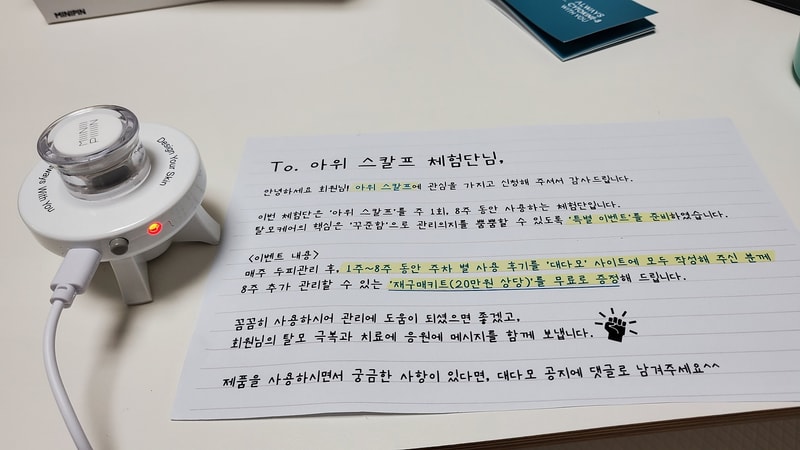 MINIMIN
ALWAYS
WITH YOU
Design Your Skin
Always With You
To. 아위 스칼프 체험단님,
안녕하세요 회원님! 아위 스칼프에 관심을 가지고 신청해 주셔서 감사드립니다.
이번 체험단은 '아위 스칼프'를 주 1회, 8주 동안 사용하는 체험단입니다.
탈모케어의 핵심은 '꾸준함'으로 관리의지를 뿜뿜할 수 있도록 '특별 이벤트'를 준비하였습니다.
<이벤트 내용>
매주 두피관리 후, 1주~8주 동안 주차 별 사용 후기를 '대다모' 사이트에 모두 작성해 주신 분께
8주 추가 관리할 수 있는 '재구매키트(20만원 상당)'를 무료로 증정해 드립니다.
꼼꼼히 사용하시어 관리에 도움이 되셨으면 좋겠고,
회원님의 탈모 극복과 치료에 응원에 메시지를 함께 보냅니다.
제품을 사용하시면서 궁금한 사항이 있다면, 대다모 공지에 댓글로 남겨주세요^^